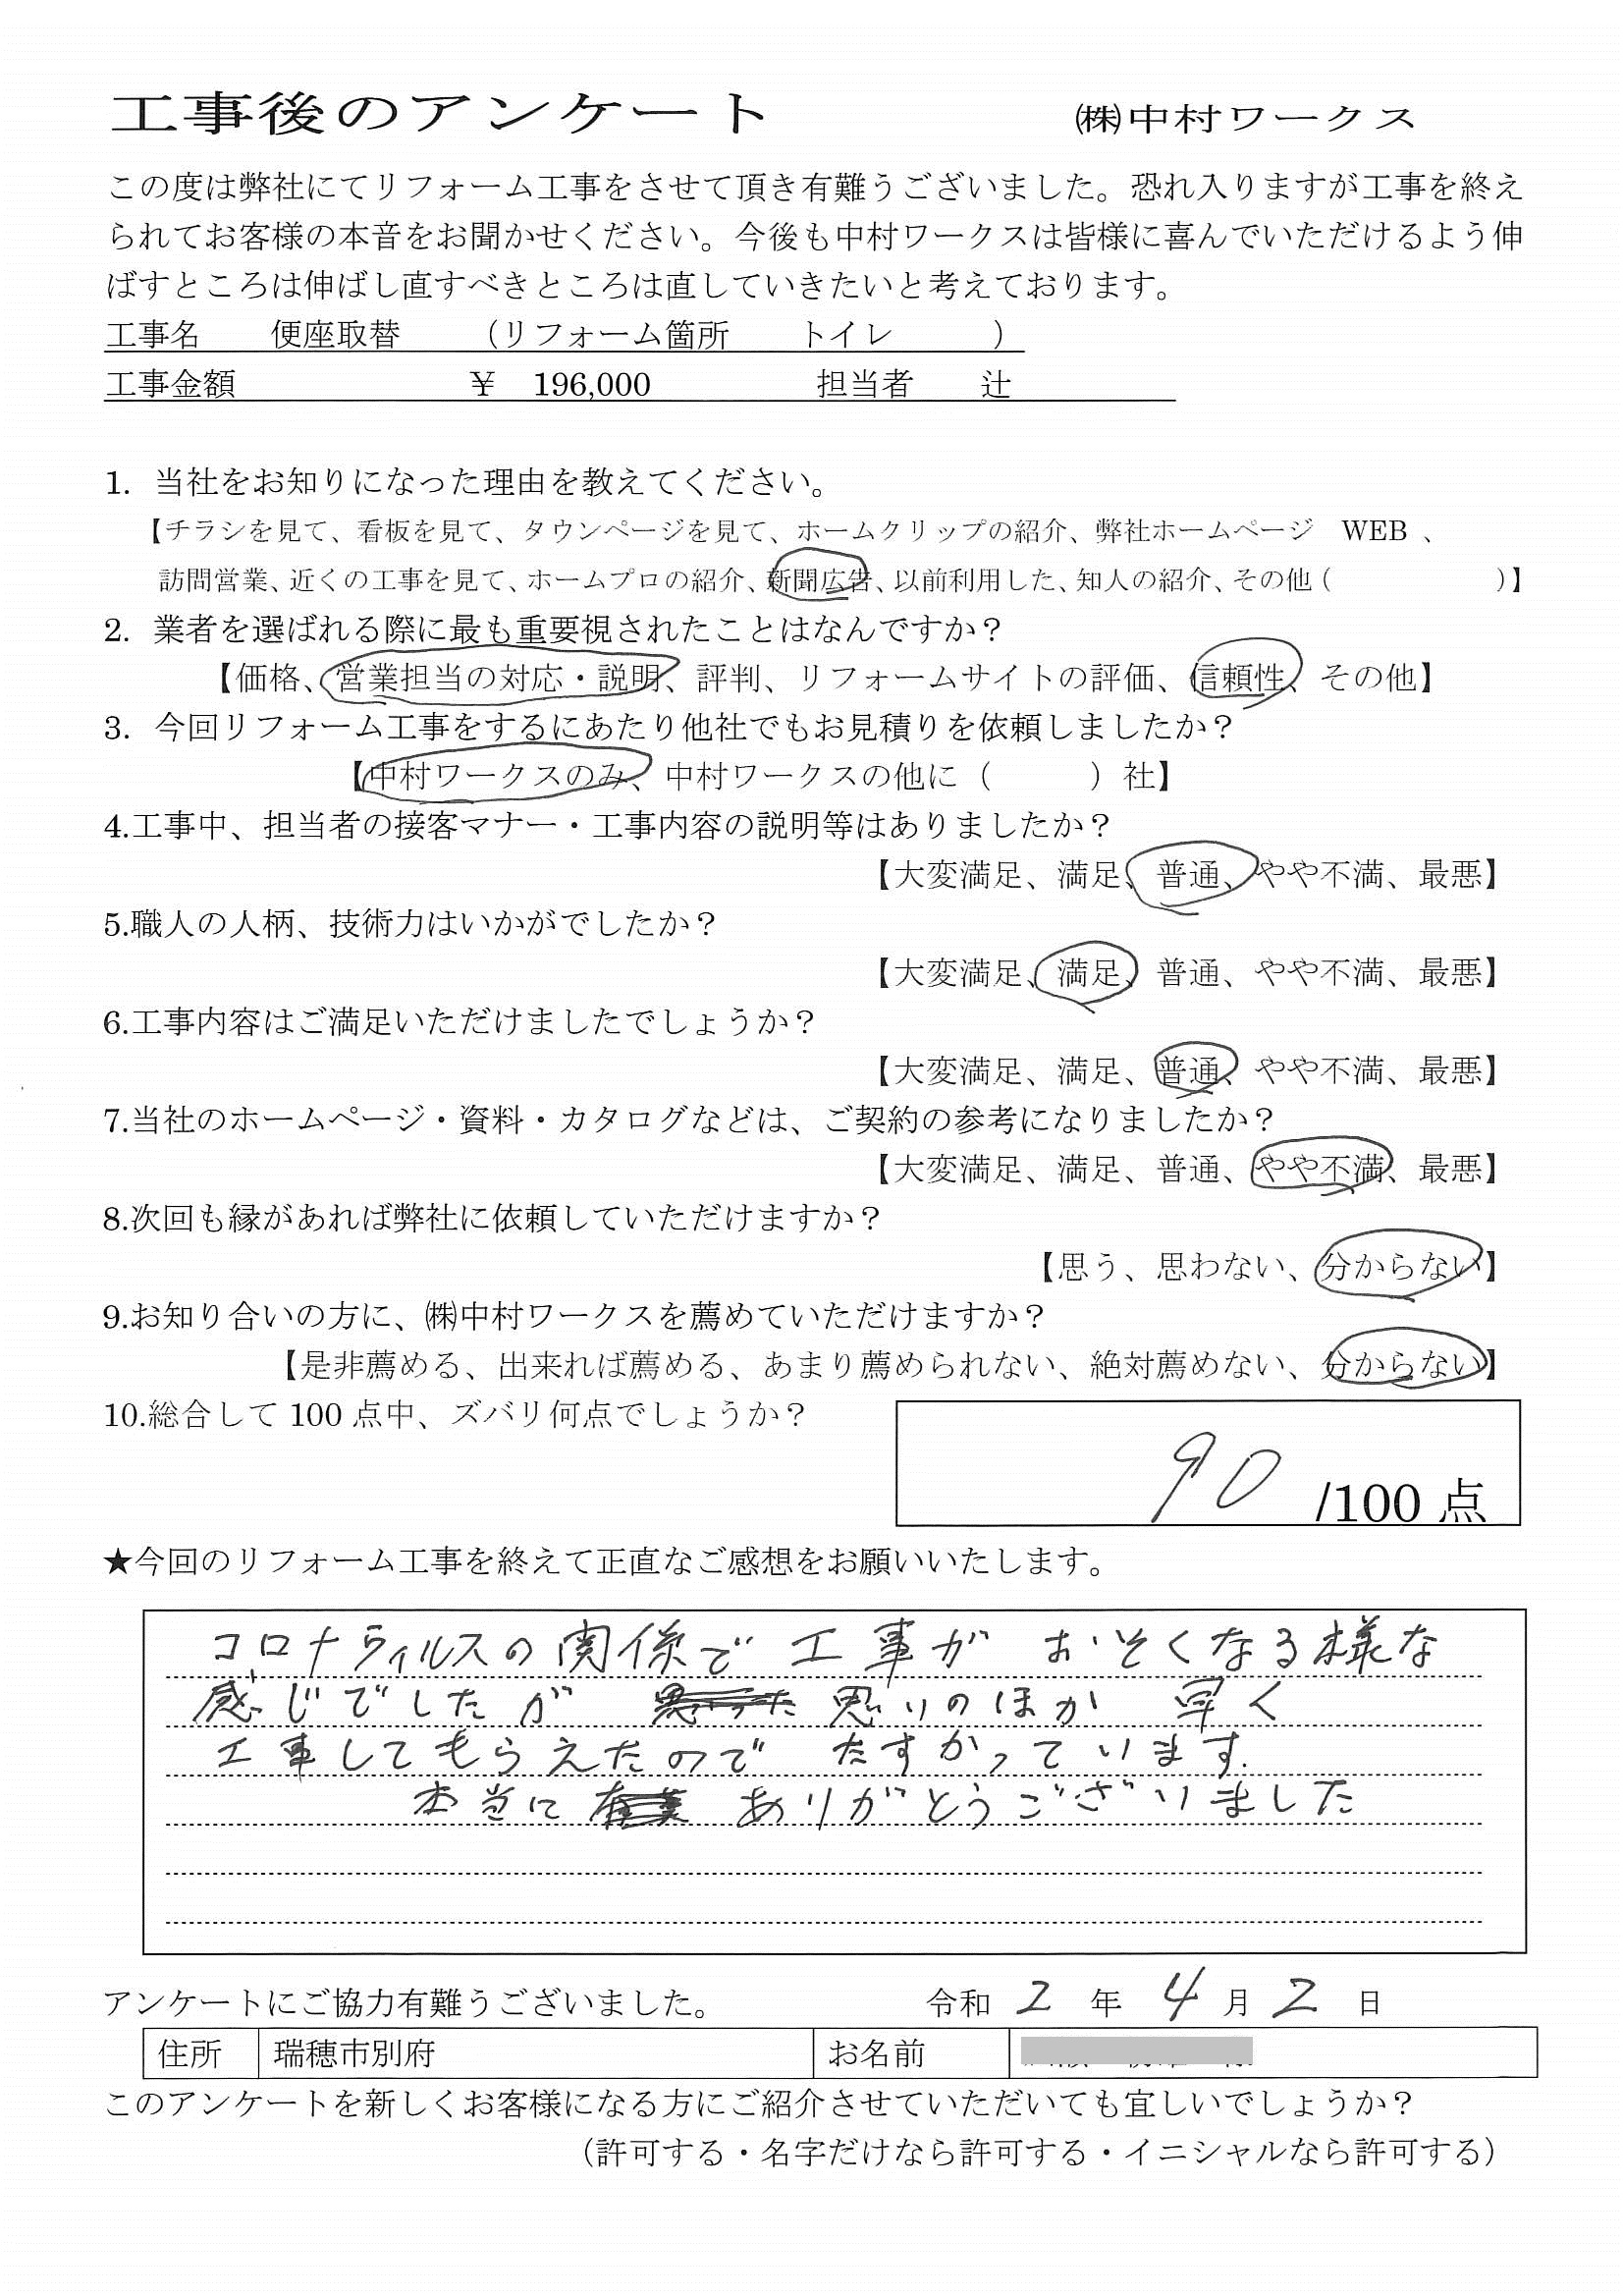 工事後のアンケート ㈱中村ワークス
この度は弊社にてリフォーム工事をさせて頂き有難うございました。恐れ入りますが工事を終え
られてお客様の本音をお聞かせください。今後も中村ワークスは皆様に喜んでいただけるよう伸
ばすところは伸ばし直すべきところは直していきたいと考えております。
工事名 便座取替 （リフォーム箇所 トイレ ）
工事金額 ￥ 196,000 担当者 辻
1. 当社をお知りになった理由を教えてください。
【チラシを見て、看板を見て、タウンページを見て、ホームクリップの紹介、弊社ホームページ WEB 、
訪問営業、近くの工事を見て、ホームプロの紹介、新聞広告、以前利用した、知人の紹介、その他（ ）】
2. 業者を選ばれる際に最も重要視されたことはなんですか？
【価格、営業担当の対応・説明、評判、リフォームサイトの評価、信頼性、その他】
3. 今回リフォーム工事をするにあたり他社でもお見積りを依頼しましたか？
【中村ワークスのみ、中村ワークスの他に（ ）社】
4.工事中、担当者の接客マナー・工事内容の説明等はありましたか？
【大変満足、満足、普通、やや不満、最悪】
5.職人の人柄、技術力はいかがでしたか？
【大変満足、満足、普通、やや不満、最悪】
6.工事内容はご満足いただけましたでしょうか？
【大変満足、満足、普通、やや不満、最悪】
7.当社のホームページ・資料・カタログなどは、ご契約の参考になりましたか？
【大変満足、満足、普通、やや不満、最悪】
8.次回も縁があれば弊社に依頼していただけますか？
【思う、思わない、分からない】
9.お知り合いの方に、㈱中村ワークスを薦めていただけますか？
【是非薦める、出来れば薦める、あまり薦められない、絶対薦めない、分からない】
10.総合して 100 点中、ズバリ何点でしょうか？
90 /100 点
★今回のリフォーム工事を終えて正直なご感想をお願いいたします。
コロナウィルスの関係で 工事が おそくなる様な
感じでしたが 思いのほか 早く
工事してもらえたので たすかっています.
本当に ありがとうございました
アンケートにご協力有難うございました。 令和 2 年 4 月 2 日
住所 瑞穂市別府 お名前
このアンケートを新しくお客様になる方にご紹介させていただいても宜しいでしょうか？
（許可する・名字だけなら許可する・イニシャルなら許可する）